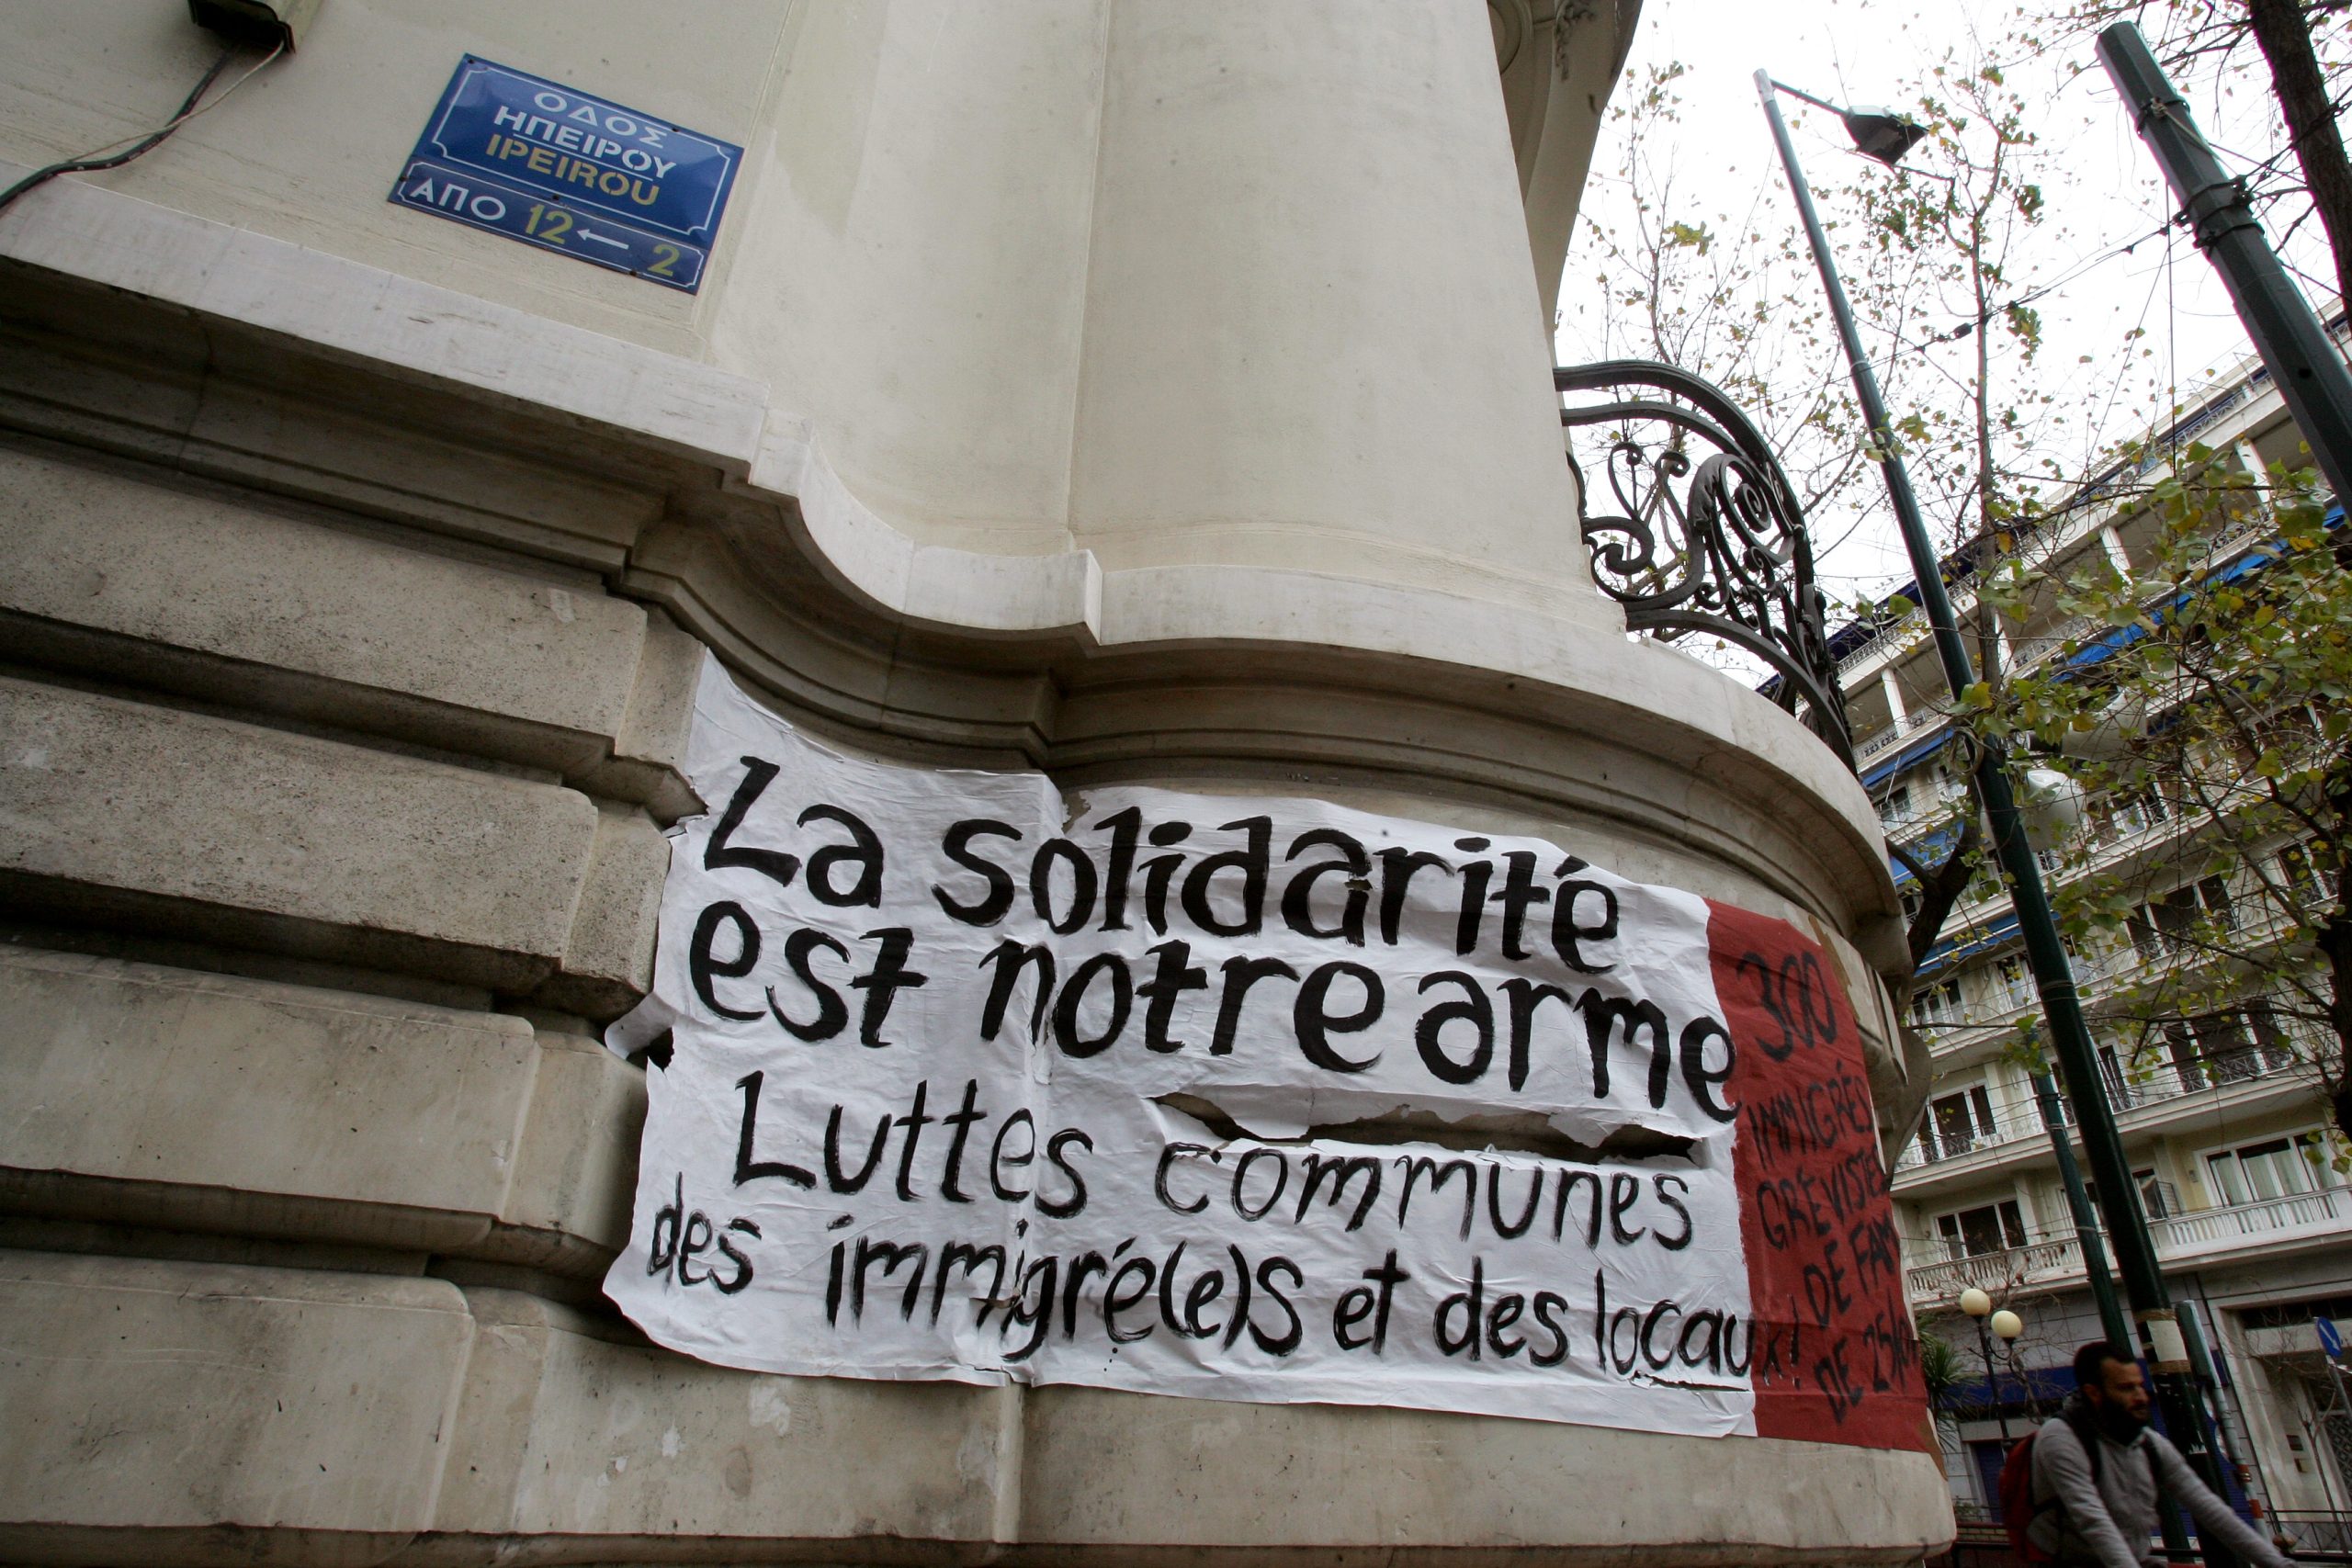 ΟΔΟΣ
ΗΠΕΙΡΟΥ
IPEIROU
ΑΠΟ 12 ← 2
La solidarité
est notre arme
Luttes communes
des immigré(e)s et des locaux!
300
IMMIGRÉS
GRÉVISTES
DE FAIM
DE